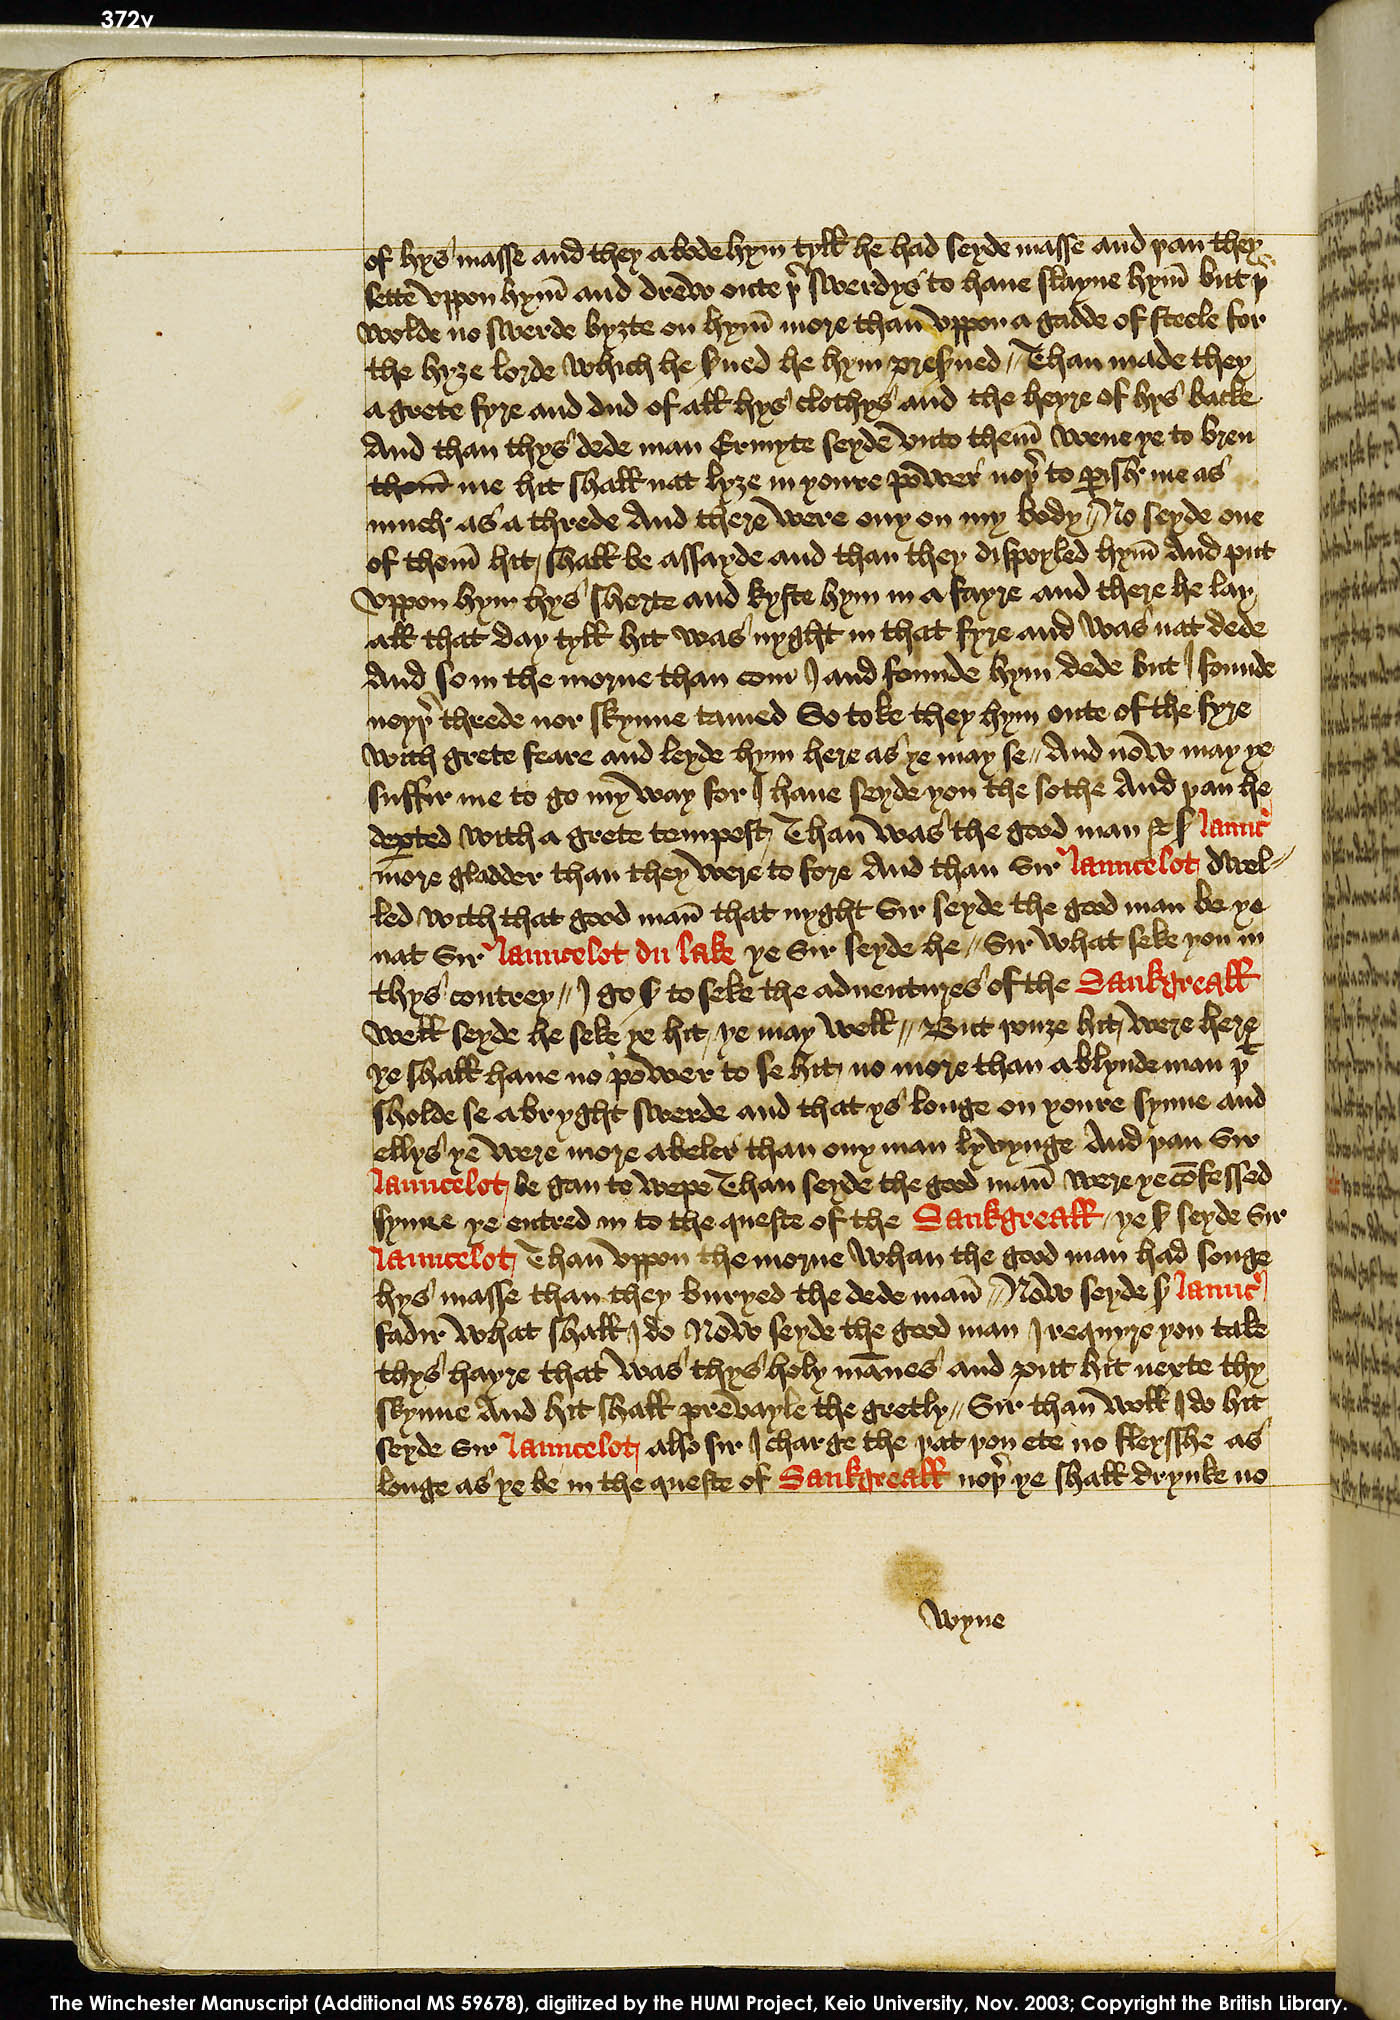 372v
of hys masse and they abode hym tyll he had seyde masse and þan they
sette vppon hym̄ and drew oute þr swerdys to haue slayne hym̄ but þr
wolde no swerde byȝte on hym̄ more than vppon a gadde of steele for
the hyȝe lorde which he sued he hym presued // Than made they
a grete fyre and dud of all hys clothys and the heyre of hys backe
And than thys dede man Ermyte seyde vnto them̄ wene ye to bren
them̄ me hit shall nat lyȝe in youre power noþr to perish me as
much as a threde And there were ony on my body // No seyde one
of them̄ hit shall be assayde and than they dispoyled hym̄ And put
vppon hym hys sherte and kyste hym in a fayre and there he lay
all that day tyll hit was nyght in that fyre and was nat dede
And so in the morne than com I and founde hym dede but I founde
neyþr threde nor skynne tamed So toke they hym oute of the fyre
with grete feare and leyde hym here as ye may se // And now may ye
suffir me to go my way for I haue seyde you the sothe And þan he
depted with a grete tempest Than was the good man & s̄ launcr
more gladder than they were to fore And than Sir launcelot dwel-
led with that good man̄ that nyght Sir seyde the good man be ye
nat Sir launcelot du lake ye Sir seyde he // Sir what seke you in
thys contrey // I go s̄ to seke the aduentures of the Sankgreall
well seyde he seke ye hit ye may well // But þouȝe hit were here
ye shall haue no power to se hit no more than a blynde man þt
sholde se a bryght swerde and that ys longe on youre synne and
ellys ye were more abeler than ony man lyvynge And þan Sir
launcelot be gan to wepe Than seyde the good man̄ were ye cōfessed
synne ye entred in to the queste of the Sankgreall / ye s̄ seyde Sir
launcelot Than vppon the morne whan the good man had songe
hys masse than they buryed the dede man̄ // Now seyde s̄ launcr
fadir what shall I do Now seyde the good man I requyre you take
thys hayre that was thys holy mānes and put hit nexte thy
skynne And hit shall prevayle the gretly // Sir than woll I do hit
seyde Sir launcelot also sir I charge the þat you ete no fleysshe as
longe as ye be in the queste of Sankgreall noþr ye shall drynke no
wyne
The Winchester Manuscript (Additional MS 59678), digitized by the HUMI Project, Keio University, Nov. 2003; Copyright the British Library.